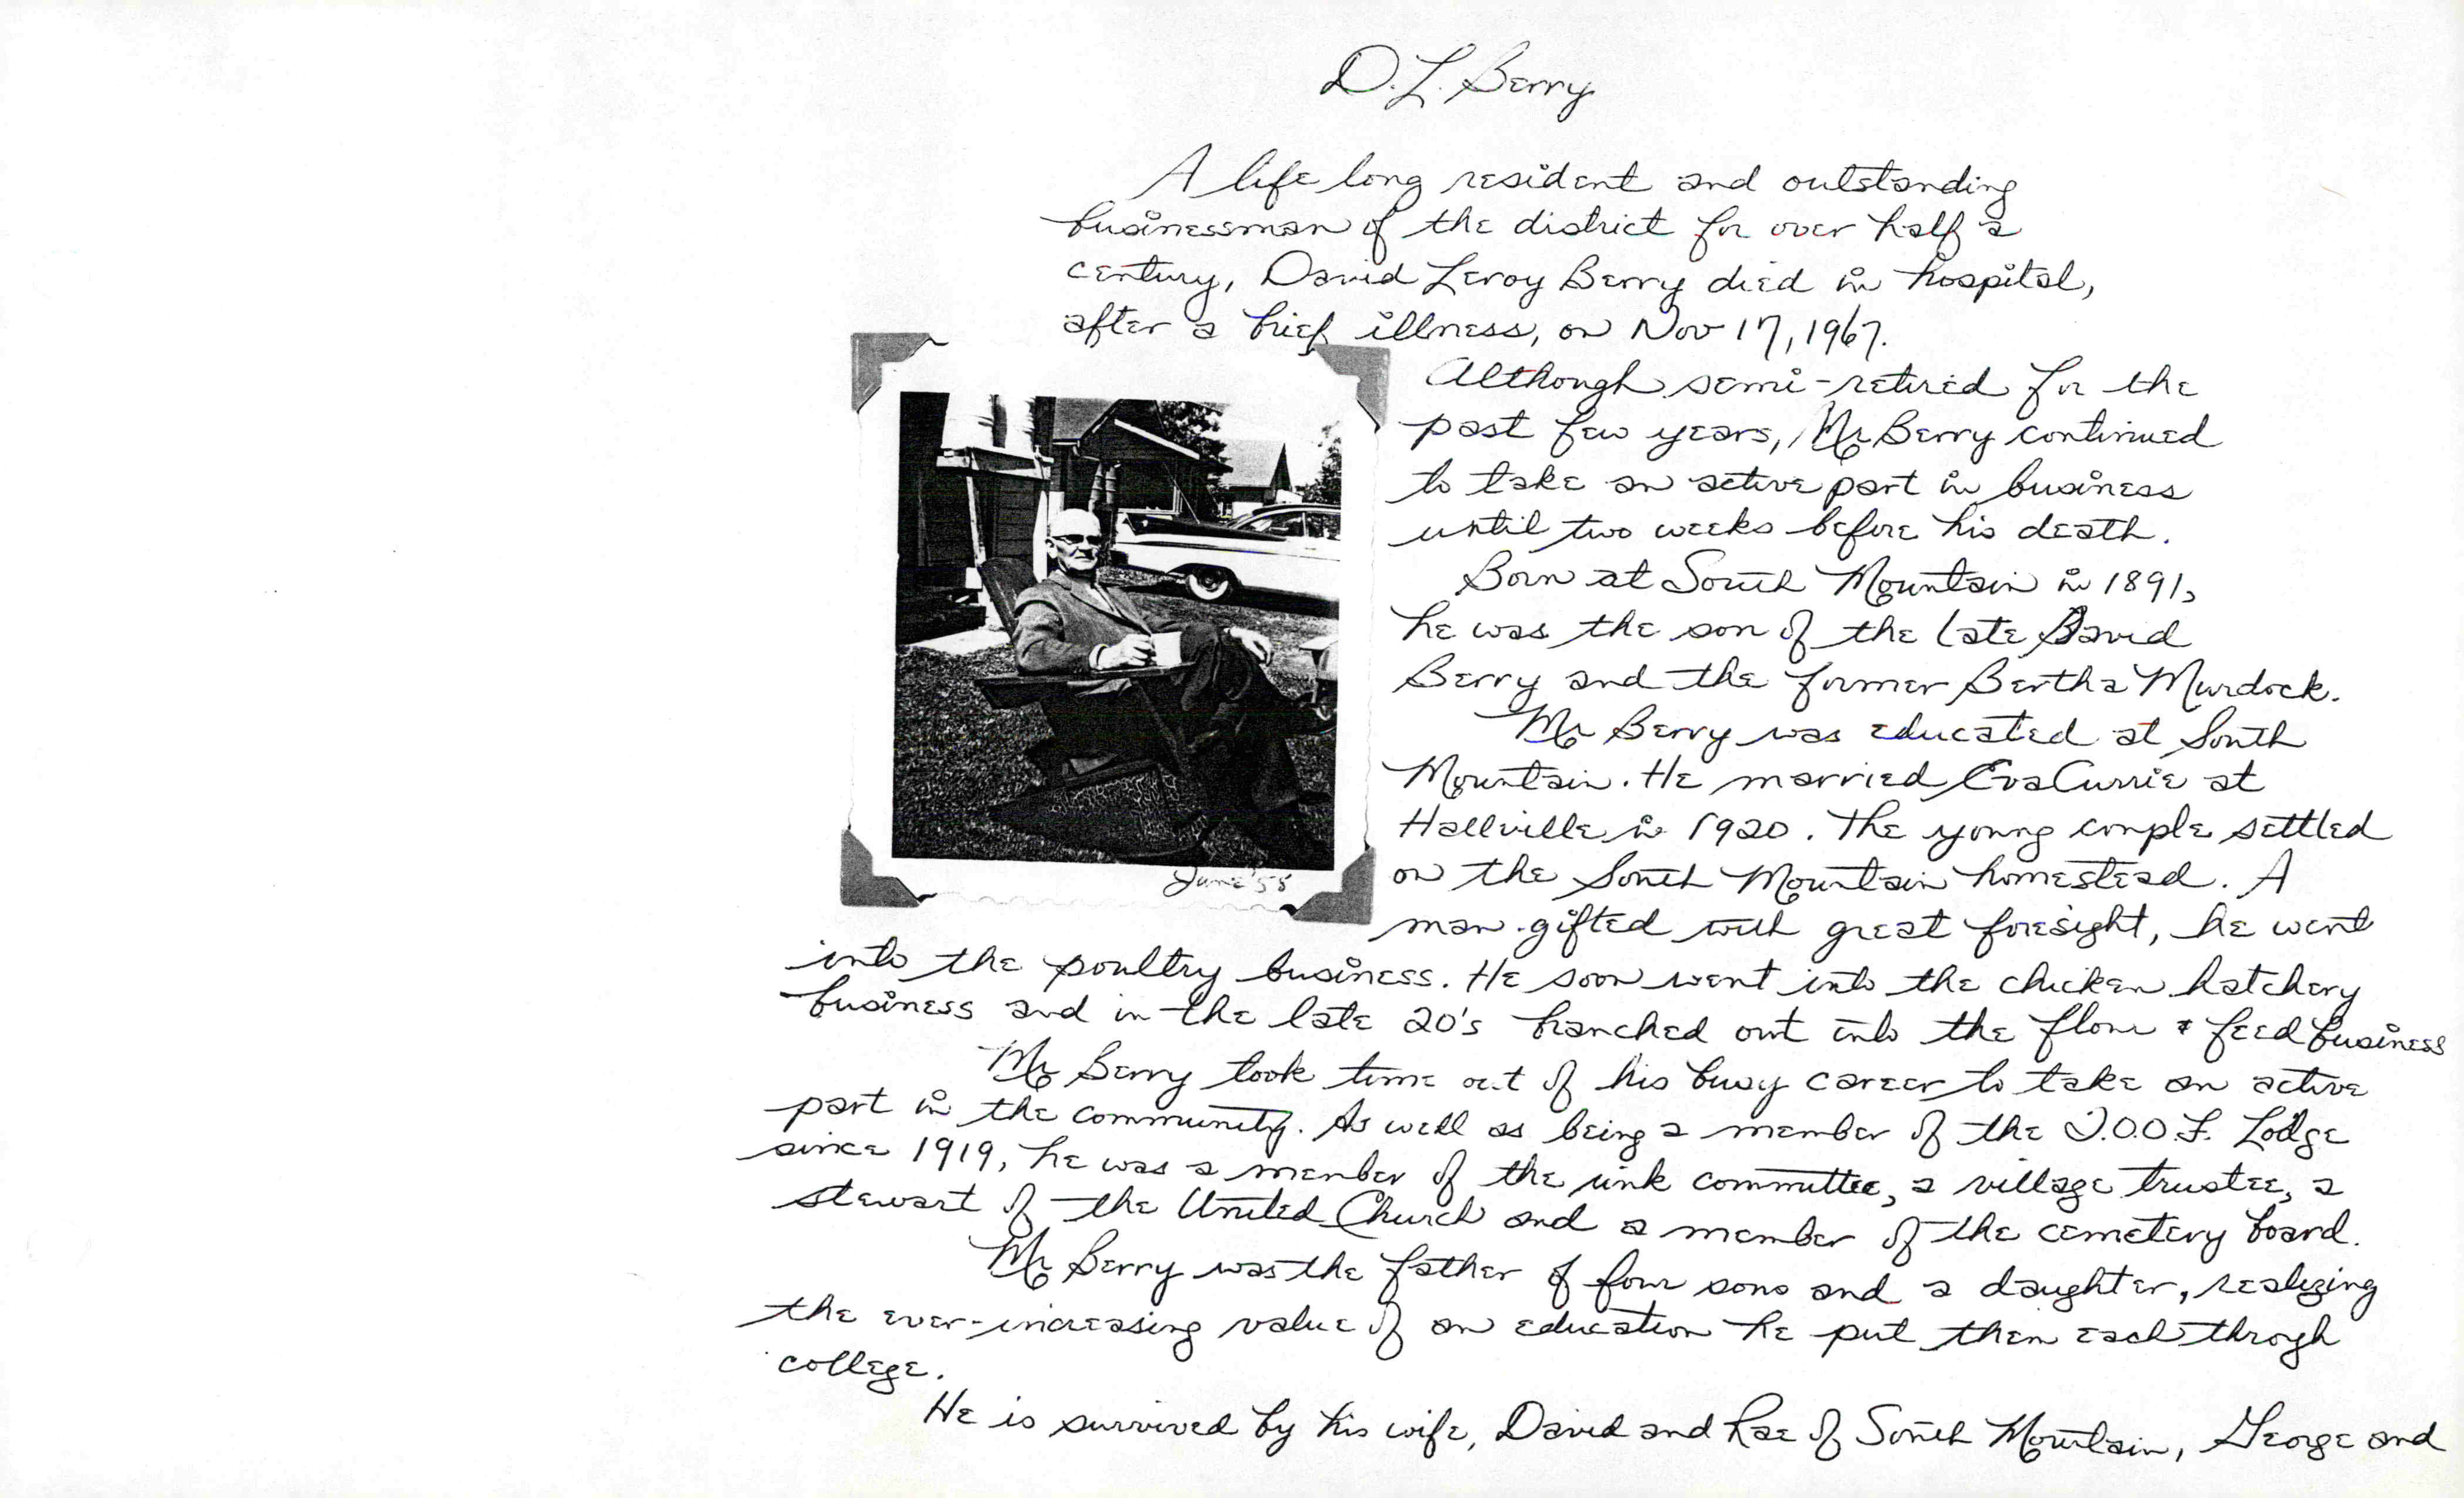 D. L. Berry
A life long resident and outstanding
businessman of the district for over half a
century, David Leroy Berry died in hospital,
after a brief illness, on Nov 17, 1967.
Although semi-retired for the
past few years, Mr Berry continued
to take an active part in business
until two weeks before his death.
Born at South Mountain in 1891,
he was the son of the late David
Berry and the former Bertha Murdock.
Mr Berry was educated at South
Mountain. He married Eva Currie at
Hallville in 1920. The young couple settled
on the South Mountain homestead. A
man gifted with great foresight, he went
June '58
into the poultry business. He soon went into the chicken hatchery
business and in the late 20's branched out into the flour & feed business
Mr Berry took time out of his busy career to take an active
part in the community. As well as being a member of the I.O.O.F. Lodge
since 1919, he was a member of the rink committee, a village trustee, a
stewart of the United Church and a member of the cemetery board.
Mr Berry was the father of four sons and a daughter, realizing
the ever-increasing value of an education he put them each throgh
college.
He is survived by his wife, David and Rae of South Mountain, George and